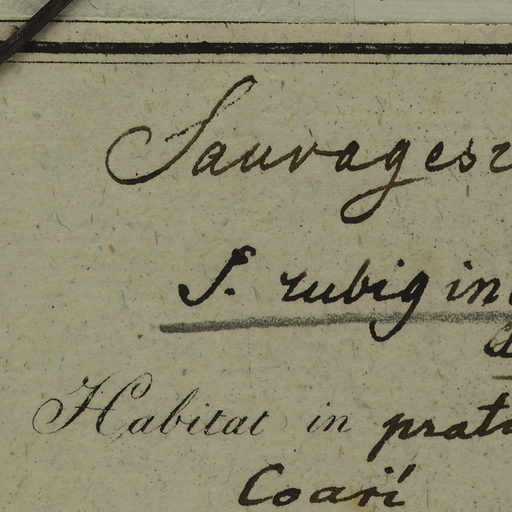 Sauvagesi
S. rubigin
Habitat in prat
Coari